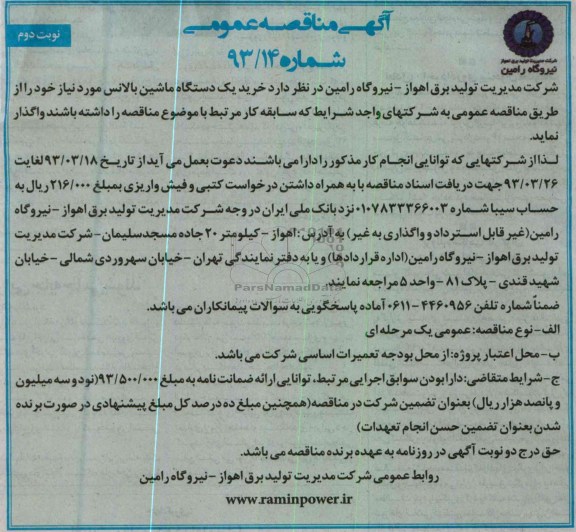 آگهی مناقصه عمومی
شماره ۹۳/۱۴
نوبت دوم
شرکت مدیریت تولید برق اهواز
نیروگاه رامین
شرکت مدیریت تولید برق اهواز -نیروگاه رامین در نظر دارد خرید یک دستگاه ماشین بالانس مورد نیاز خود را از
طریق مناقصه عمومی به شرکتهای واجد شرایط که سابقه کار مرتبط با موضوع مناقصه را داشته باشند واگذار
نماید.
لذا از شرکتهایی که توانایی انجام کار مذکور را دارا می باشند دعوت بعمل می آید از تاریخ ۹۳/۰۳/۱۸ لغایت
۹۳/۰۳/۲۶ جهت دریافت اسناد مناقصه با به همراه داشتن درخواست کتبی و فیش واریزی بمبلغ ۲۱۶/۰۰۰ ریال به
حساب سیبا شماره ۰۱۰۷۸۳۳۳۶۶۰۰۳ نزد بانک ملی ایران در وجه شرکت مدیریت تولید برق اهواز -نیروگاه
رامین (غیر قابل استرداد و واگذاری به غیر) به آدرس: اهواز -کیلومتر ۲۰ جاده مسجدسلیمان- شرکت مدیریت
تولید برق اهواز -نیروگاه رامین (اداره قراردادها) و یا به دفتر نمایندگی تهران -خیابان سهروردی شمالی -خیابان
شهید قندی - پلاک ۸۱ - واحد ۵ مراجعه نمایند.
ParsNamadData
ضمناً شماره تلفن ۴۴۶۰۹۵۶-۰۶۱۱ آماده پاسخگویی به سوالات پیمانکاران می باشد.
الف- نوع مناقصه: عمومی یک مرحله ای
ب- محل اعتبار پروژه: از محل بودجه تعمیرات اساسی شرکت می باشد.
ج- شرایط متقاضی: دارا بودن سوابق اجرایی مرتبط، توانایی ارائه ضمانت نامه به مبلغ ۹۳/۵۰۰/۰۰۰ (نود و سه میلیون
و پانصد هزار ریال) بعنوان تضمین شرکت در مناقصه (همچنین مبلغ ده درصد کل مبلغ پیشنهادی در صورت برنده
شدن بعنوان تضمین حسن انجام تعهدات)
حق درج دو نوبت آگهی در روزنامه به عهده برنده مناقصه می باشد.
روابط عمومی شرکت مدیریت تولید برق اهواز -نیروگاه رامین
www.raminpower.ir